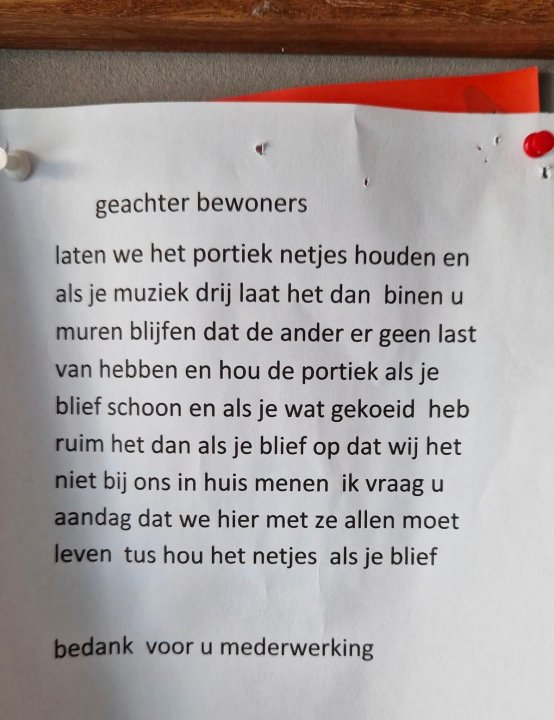 geachter bewoners
laten we het portiek netjes houden en
als je muziek drij laat het dan binen u
muren blijfen dat de ander er geen last
van hebben en hou de portiek als je
blief schoon en als je wat gekoeid heb
ruim het dan als je blief op dat wij het
niet bij ons in huis menen ik vraag u
aandag dat we hier met ze allen moet
leven tus hou het netjes als je blief
bedank voor u mederwerking